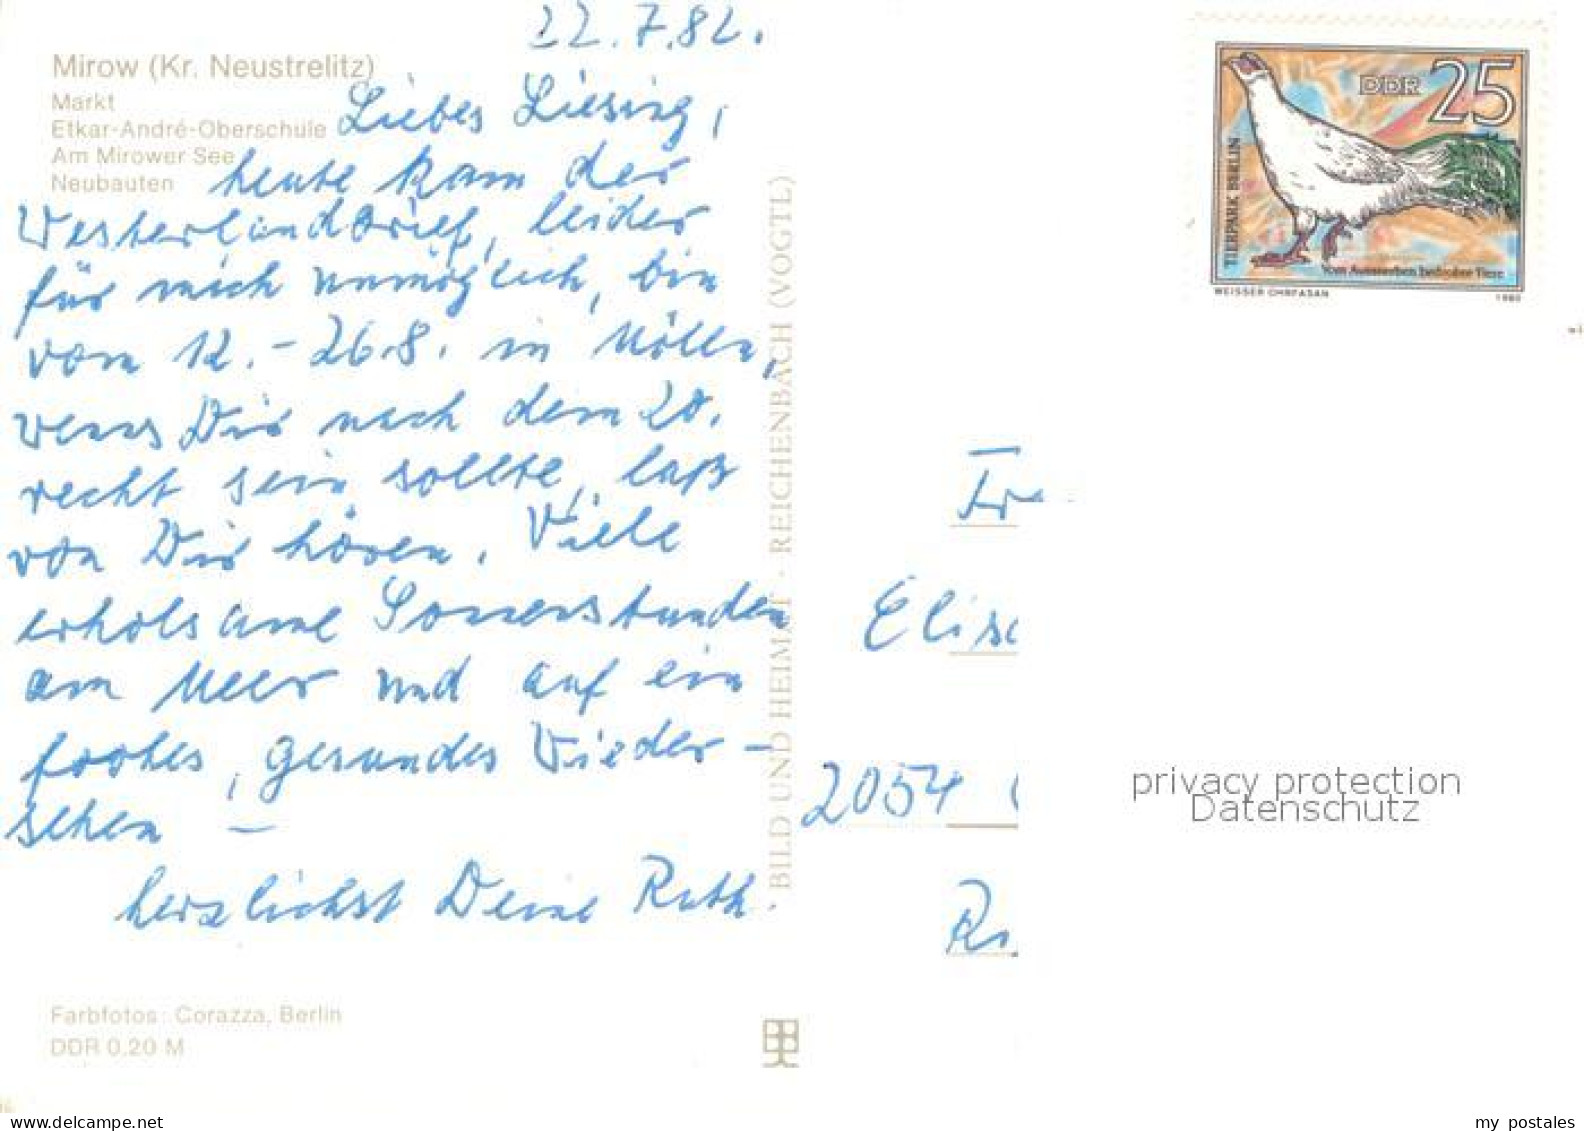 22.7.82.
Mirow (Kr. Neustrelitz)
Markt
Etkar-André-Oberschule
Am Mirower See
Neubauten
Liebes Liesing,
heute kam der
Westerlandbrief, leider
für mich unmöglich, bin
vom 12.-26.8. in Mölln,
wenns Dir nach dem 20.
recht sein sollte, laß
von Dir hören. Viele
erholsame Sonnenstunden
am Meer und auf ein
frohes, gesundes Wieder-
sehen –
herzlichst Deine Ruth.
Farbfotos: Corazza, Berlin
DDR 0,20 M
BILD UND HEIMAT · REICHENBACH (VOGTL)
DDR 25
TIERPARK BERLIN
Vom Aussterben bedrohte Tiere
WEISSER OHRFASAN 1980
Fr
Elis
2054
privacy protection
Datenschutz
delcampe.net
my postales